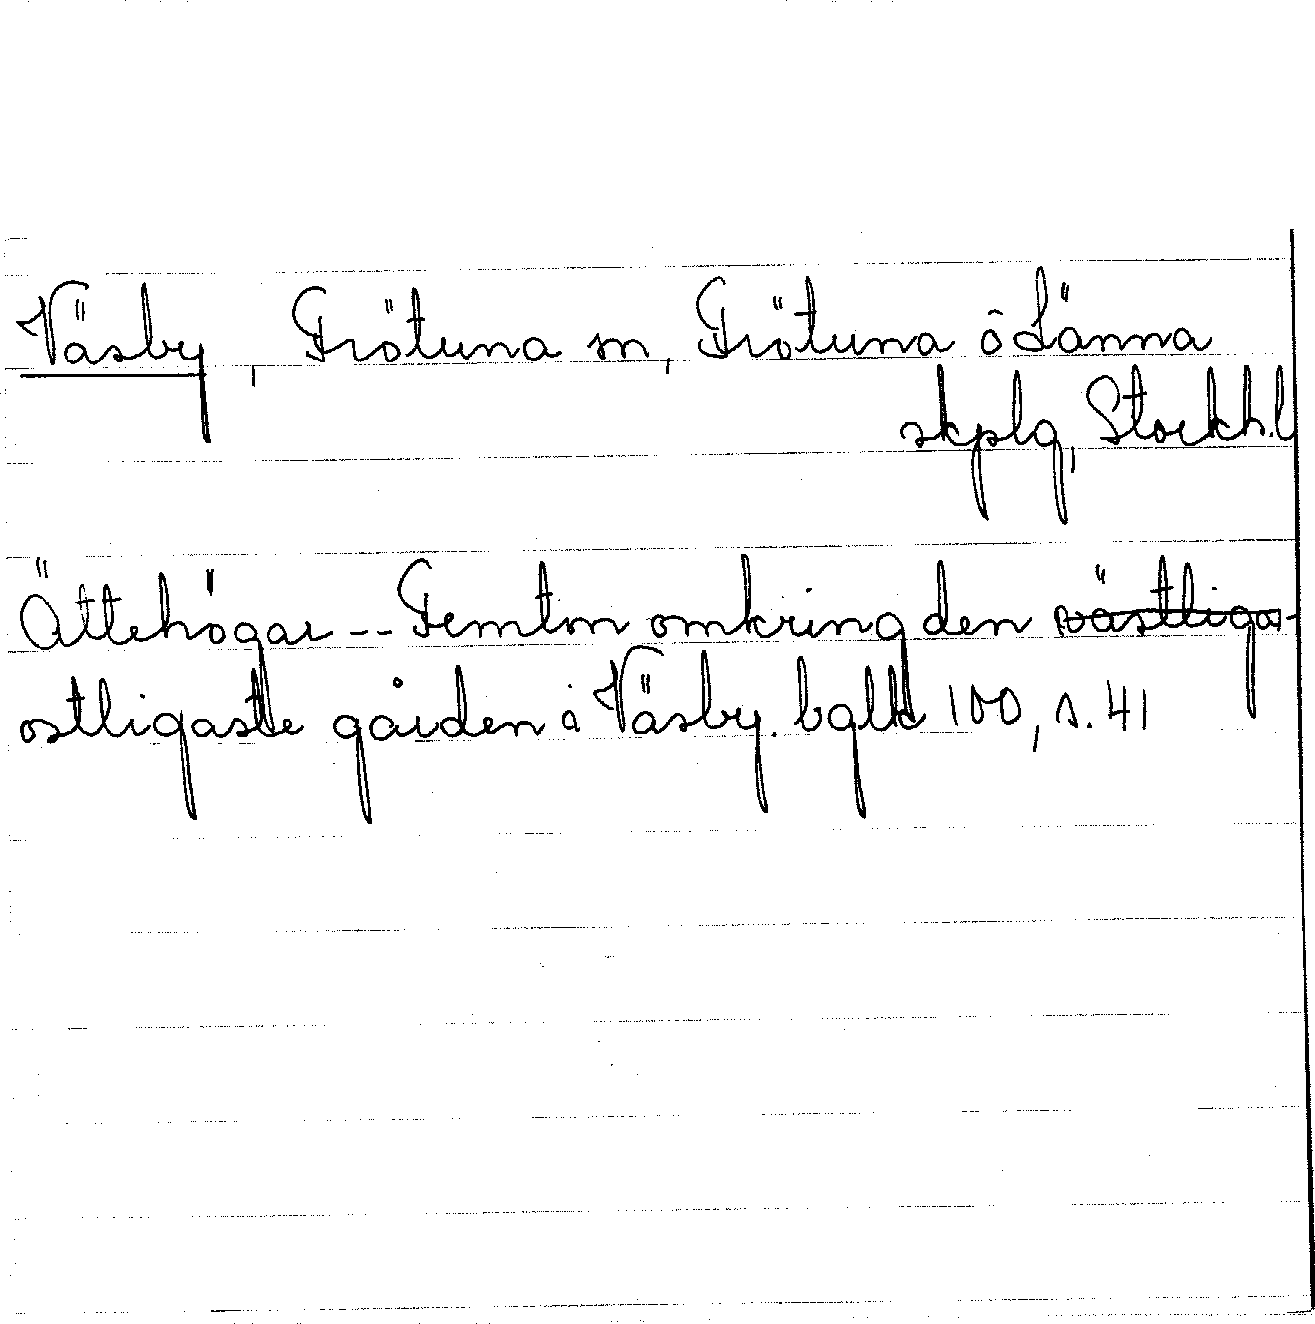 Väsby, Frötuna sn, Frötuna o Länna
skplg, Stockh.l
Ättehögar -- Femton omkring den västliga-
ostligaste gården i Väsby. bglk 100, s. 41